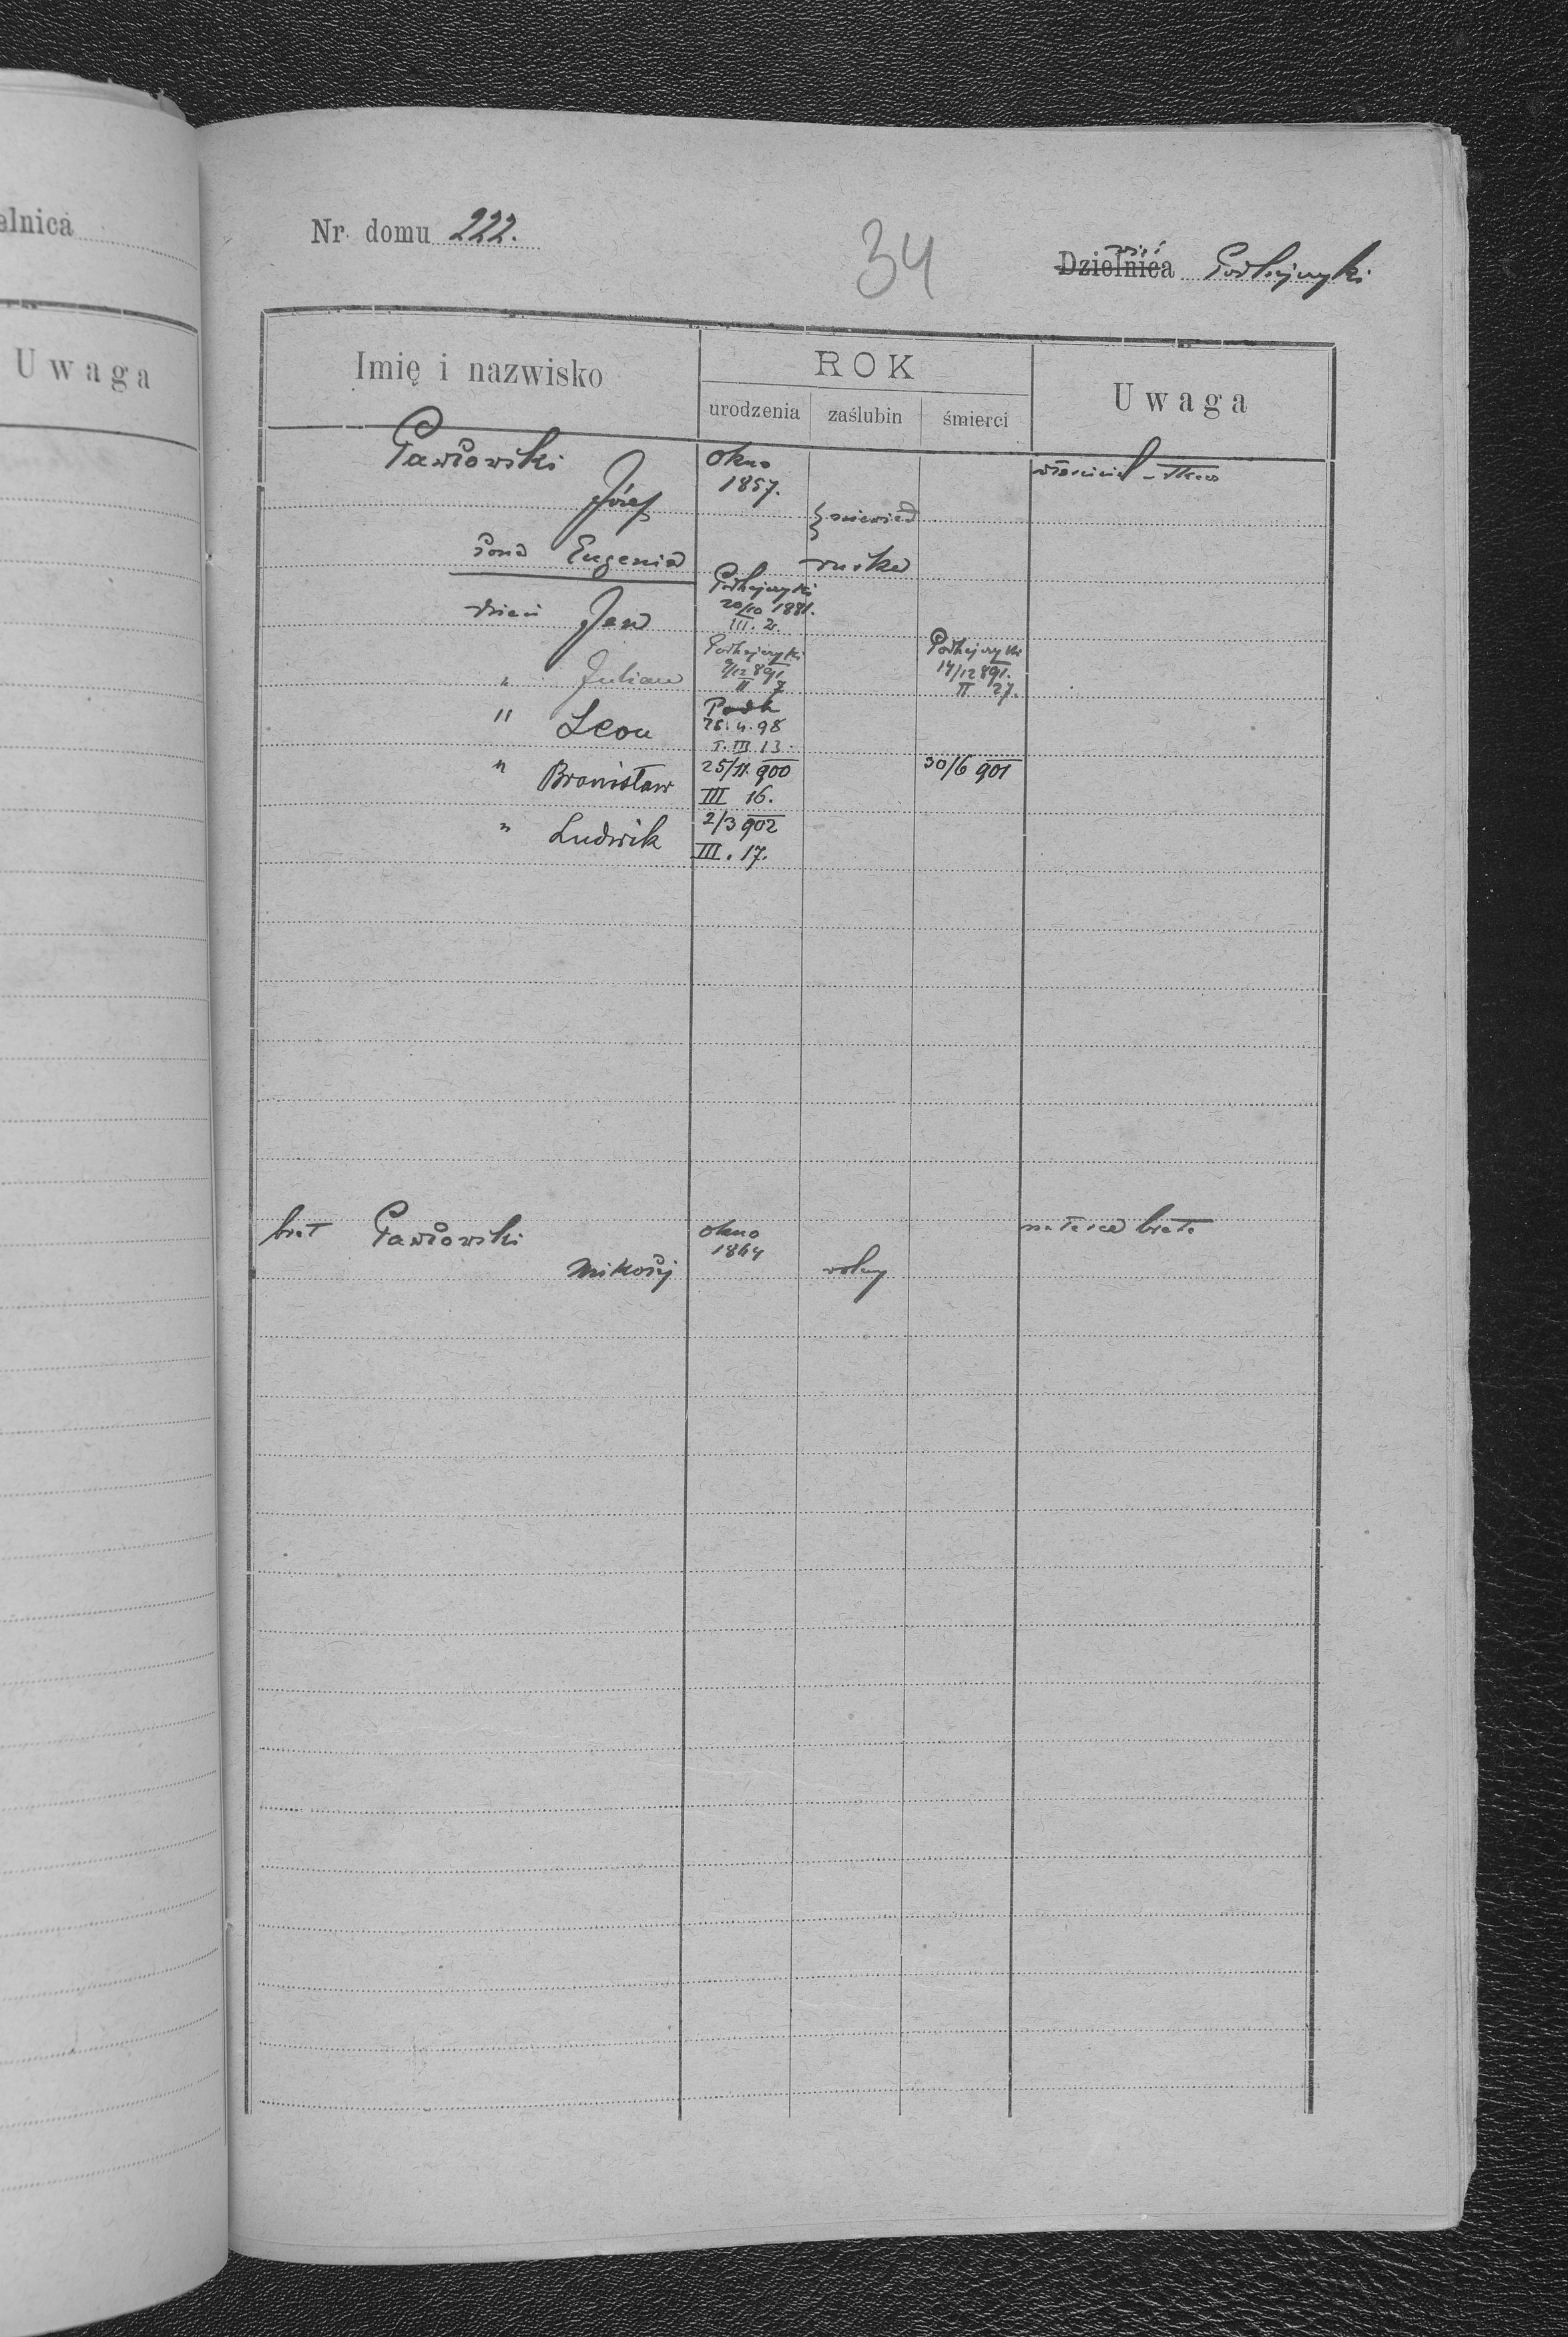 elnica
Uwaga
Nr. domu 222.
34
wieś
Dzielnica Podhajczyki
Imię i nazwisko
ROK
urodzenia zaślubin śmierci
Uwaga
Pawłowski
Józef
Okno
1857.
żona Eugenia
dzieci Jan
Podhajczyki
20/10 1881.
III. 2.
" Julian
Podhajczyki
9/12 891
II 7
Podhajczyki
14/12 891.
II 27.
" Leon
Podh
28.4.98
T. III 13.
" Bronisław
25/11. 900
III 16.
30/6 901
" Ludwik
2/3 902
III. 17.
brat Pawłowski
Mikołaj
Okno
1864
wolny
brata